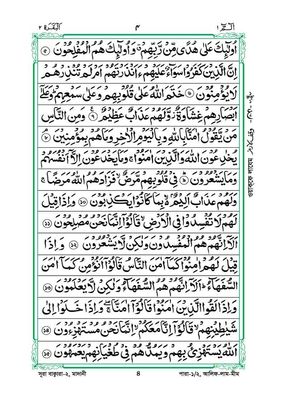 البقرة ٢
٣
الم ١
اُولٰٓئِكَ عَلٰى هُدًى مِّنْ رَّبِّهِمْ وَاُولٰٓئِكَ هُمُ الْمُفْلِحُوْنَ ۝
اِنَّ الَّذِيْنَ كَفَرُوْا سَوَآءٌ عَلَيْهِمْ ءَاَنْذَرْتَهُمْ اَمْ لَمْ تُنْذِرْهُمْ
لَا يُؤْمِنُوْنَ ۝ خَتَمَ اللّٰهُ عَلٰى قُلُوْبِهِمْ وَعَلٰى سَمْعِهِمْ وَعَلٰٓى
اَبْصَارِهِمْ غِشَاوَةٌ وَّلَهُمْ عَذَابٌ عَظِيْمٌ ۝ وَمِنَ النَّاسِ
مَنْ يَّقُوْلُ اٰمَنَّا بِاللّٰهِ وَبِالْيَوْمِ الْاٰخِرِ وَمَا هُمْ بِمُؤْمِنِيْنَ ۝
يُخٰدِعُوْنَ اللّٰهَ وَالَّذِيْنَ اٰمَنُوْا وَمَا يَخْدَعُوْنَ اِلَّآ اَنْفُسَهُمْ
وَمَا يَشْعُرُوْنَ ۝ فِيْ قُلُوْبِهِمْ مَّرَضٌ فَزَادَهُمُ اللّٰهُ مَرَضًا
وَلَهُمْ عَذَابٌ اَلِيْمٌ بِمَا كَانُوْا يَكْذِبُوْنَ ۝ وَاِذَا قِيْلَ
لَهُمْ لَا تُفْسِدُوْا فِى الْاَرْضِ قَالُوْٓا اِنَّمَا نَحْنُ مُصْلِحُوْنَ ۝
اَلَآ اِنَّهُمْ هُمُ الْمُفْسِدُوْنَ وَلٰكِنْ لَّا يَشْعُرُوْنَ ۝ وَاِذَا
قِيْلَ لَهُمْ اٰمِنُوْا كَمَآ اٰمَنَ النَّاسُ قَالُوْٓا اَنُؤْمِنُ كَمَآ اٰمَنَ
السُّفَهَآءُ اَلَآ اِنَّهُمْ هُمُ السُّفَهَآءُ وَلٰكِنْ لَّا يَعْلَمُوْنَ ۝
وَاِذَا لَقُوا الَّذِيْنَ اٰمَنُوْا قَالُوْٓا اٰمَنَّا وَاِذَا خَلَوْا اِلٰى
شَيٰطِيْنِهِمْ قَالُوْٓا اِنَّا مَعَكُمْ اِنَّمَا نَحْنُ مُسْتَهْزِءُوْنَ ۝
اَللّٰهُ يَسْتَهْزِئُ بِهِمْ وَيَمُدُّهُمْ فِيْ طُغْيَانِهِمْ يَعْمَهُوْنَ ۝
সূরা বাক্বারা-২, মাদানী
4
পারা-১/২, আলিফ-লাম-মীম